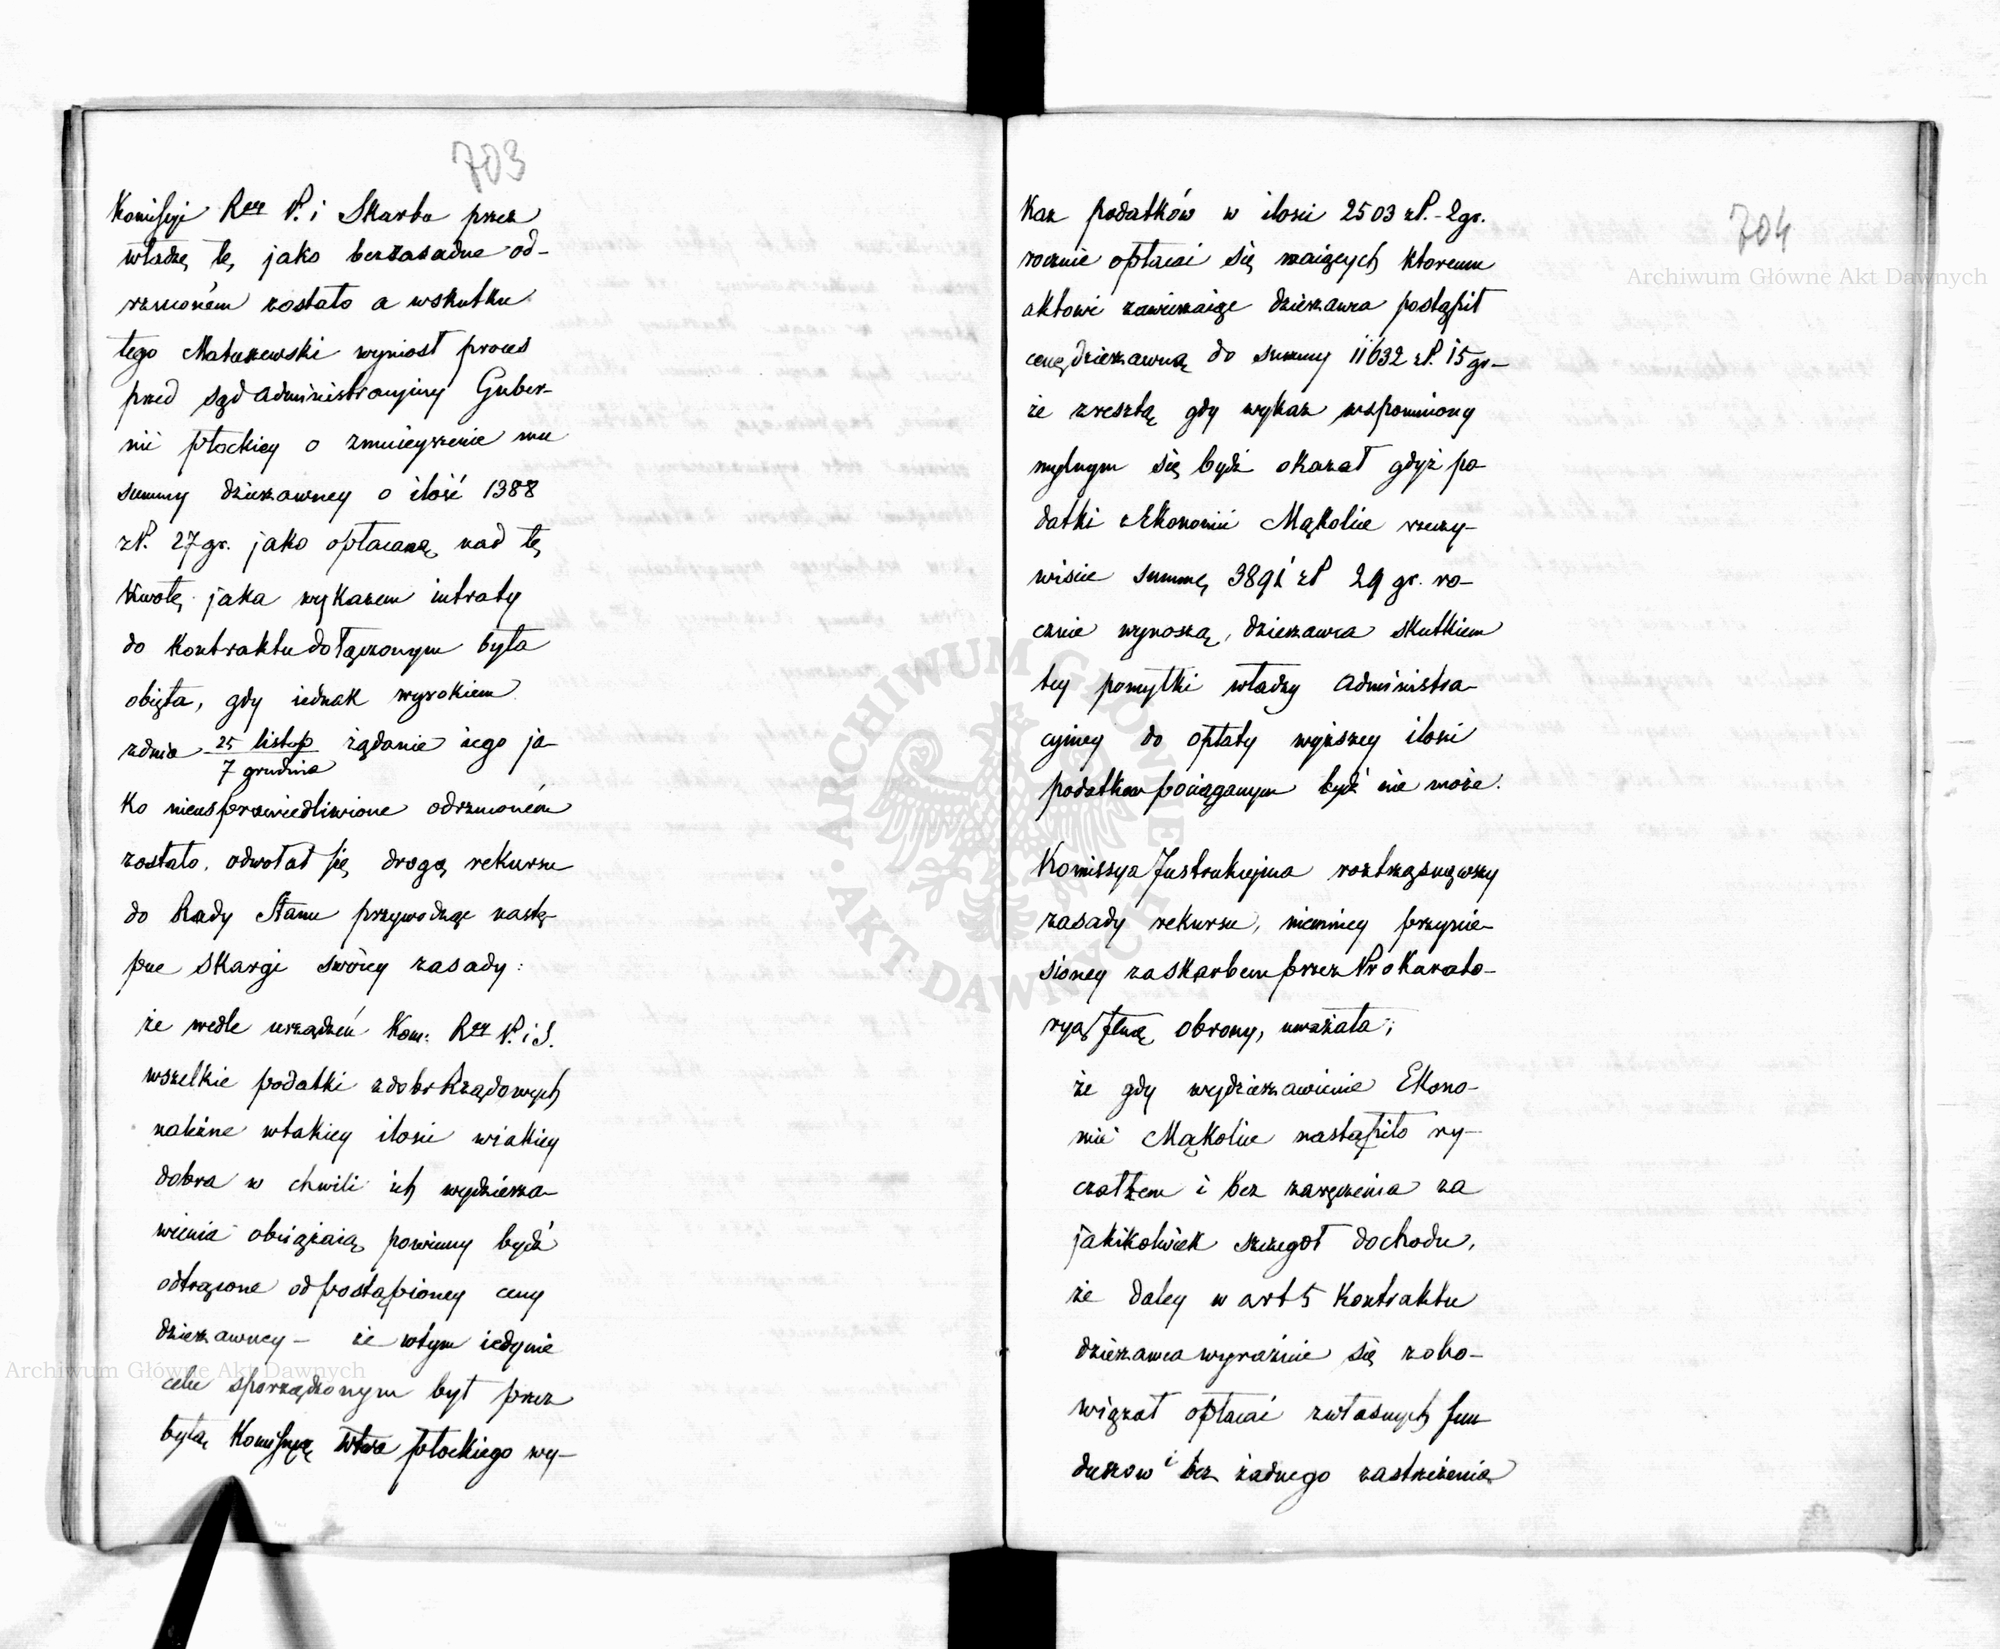 703
Komissyi Rzz P. i Skarbu przez
władzę tę, jako bezzasadne od-
rzuconém zostało a wskutku
tego Matuszewski wyniosł proces
przed sąd administracyjny Guber-
nii płockiey o zmnieyszenie mu
summy dzierzawney o ilość 1388
zł. 27 gr. jako opłacaną nad tę
kwotę jaka wykazem intraty
do kontraktu dołączonym była
obięta, gdy iednak wyrokiem
zdnia 25 listop / 7 grudnia żądanie iego ja-
ko nieusprawiedliwione odrzuconém
zostało, odwołał się drogą rekursu
do Rady Stanu przywodząc nastę-
pne skargi swóiey zasady:
że wedle urządzeń Kom: Rzz P. i S.
wszelkie podatki zdobr Rządowych
należne wtakiey ilosci wiakiey
dobra w chwili ich wydzierza-
wienia obciążaią powinny bydź
odtrącone od postąpioney ceny
dzierzawney – że wtym iedynie
celu sporządzonym był przez
byłą Komissyą Wtwa płockiego wy-
704
kaz podatków w ilosci 2503 zł. – 2 gr.
rocznie opłacać się maiących ktoremu
aktowi zawierzaiąc dzierzawca postąpił
cenę dzierzawną do summy 11632 zł. 15 gr –
że zresztą gdy wykaz wspomniony
mylnym się bydź okazał gdyż po-
datki z Ekonomii Mąkolice rzeczy-
wiscie summę 3891 zł 29 gr. ro-
cznie wynoszą, dzierzawca skutkiem
tey pomyłki władzy administra-
cyiney do opłaty wyższey ilosci
podatków pociąganym bydź nie może.
Komissya Instrukcyjna roztrząsnąwszy
zasady rekursu, niemniey przynie-
sioney za skarbem przez Prokurato-
ryą Jlną obrony, uważała;
że gdy wydzierzawienie Ekono-
mii Mąkolice nastąpiło ry-
czałtem i bez zaręczenia za
jakikolwiek szczegoł dochodu,
że daley w art 5 kontraktu
dzierzawca wyraźnie się zobo-
wiązał opłacać zwłasnych fun-
duszow i bez żadnego zastrzeżenia
Archiwum Główne Akt Dawnych
Archiwum Główne Akt Dawnych
ARCHIWUM GŁÓWNE AKT DAWNYCH